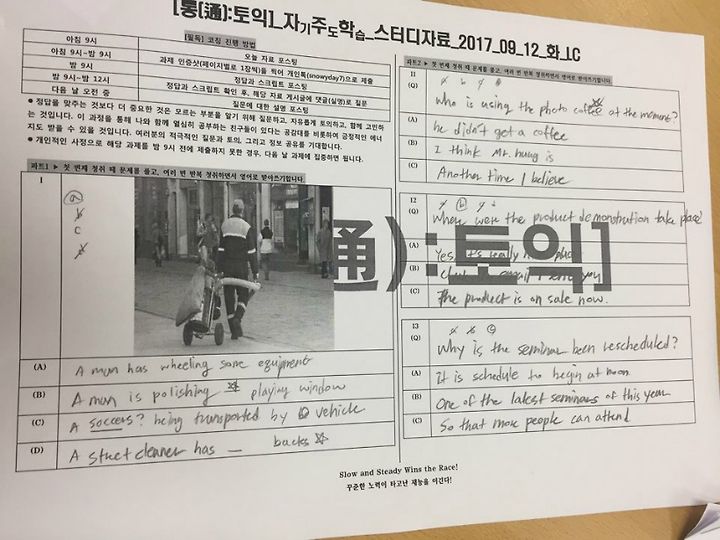 [통(通):토익]_자기주도학습_스터디자료_2017_09_12_화_LC
[필독] 코칭 진행 방법
아침 9시 오늘 자료 포스팅
아침 9시~밤 9시 과제 인증샷(페이지별로 1장씩)을 찍어 개인톡(snowyday7)으로 제출
밤 9시 정답과 스크립트 포스팅
밤 9시~밤 12시 정답과 스크립트 확인 후, 해당 자료 게시글에 댓글(실명)로 질문
다음 날 오전 중 질문에 대한 설명 포스팅
● 정답을 맞추는 것보다 더 중요한 것은 모르는 부분을 알기 위해 질문하고, 자유롭게 토의하고, 함께 고민하
는 것입니다. 이 과정을 통해 나와 함께 열심히 공부하는 친구들이 있다는 공감대를 비롯하여 긍정적인 에너
지도 받을 수 있을 것입니다. 여러분의 적극적인 질문과 토의, 그리고 정보 공유를 기대합니다.
● 개인적인 사정으로 해당 과제를 밤 9시 전에 제출하지 못한 경우, 다음 날 과제에 집중하면 됩니다.
파트1 ▶ 첫 번째 청취 때 문제를 풀고, 여러 번 반복 청취하면서 영어로 받아쓰기합니다
1
a
b
c
(A) A man has wheeling some equipment
(B) A man is polishing playing window
(C) A soccers? being transported by vehicle
(D) A street cleaner has _ backs
파트2 ▶ 첫 번째 청취 때 문제를 풀고, 여러 번 반복 청취하면서 영어로 받아쓰기합니다
11
(Q) Who is using the photo at the moment?
(A) he didn't get a coffee
(B) I think Mr. hung is
(C) Another time I believe
12
(Q) When were the product demonstration take place?
(A) Yes, it's really
(B) email I sent you
(C) The product is on sale now.
通):토익]
13
(Q) Why is the seminar been rescheduled?
(A) It is schedule to begin at noon
(B) One of the latest seminars of this year
(C) So that more people can attend
Slow and Steady Wins the Race!
꾸준한 노력이 타고난 재능을 이긴다!